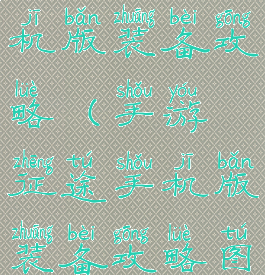 jī bǎn zhuāng bèi gōng
机版装备攻
lüè shǒu yóu
略（手游
zhēng tú shǒu jī bǎn
征途手机版
zhuāng bèi gōng lüè tú
装备攻略图